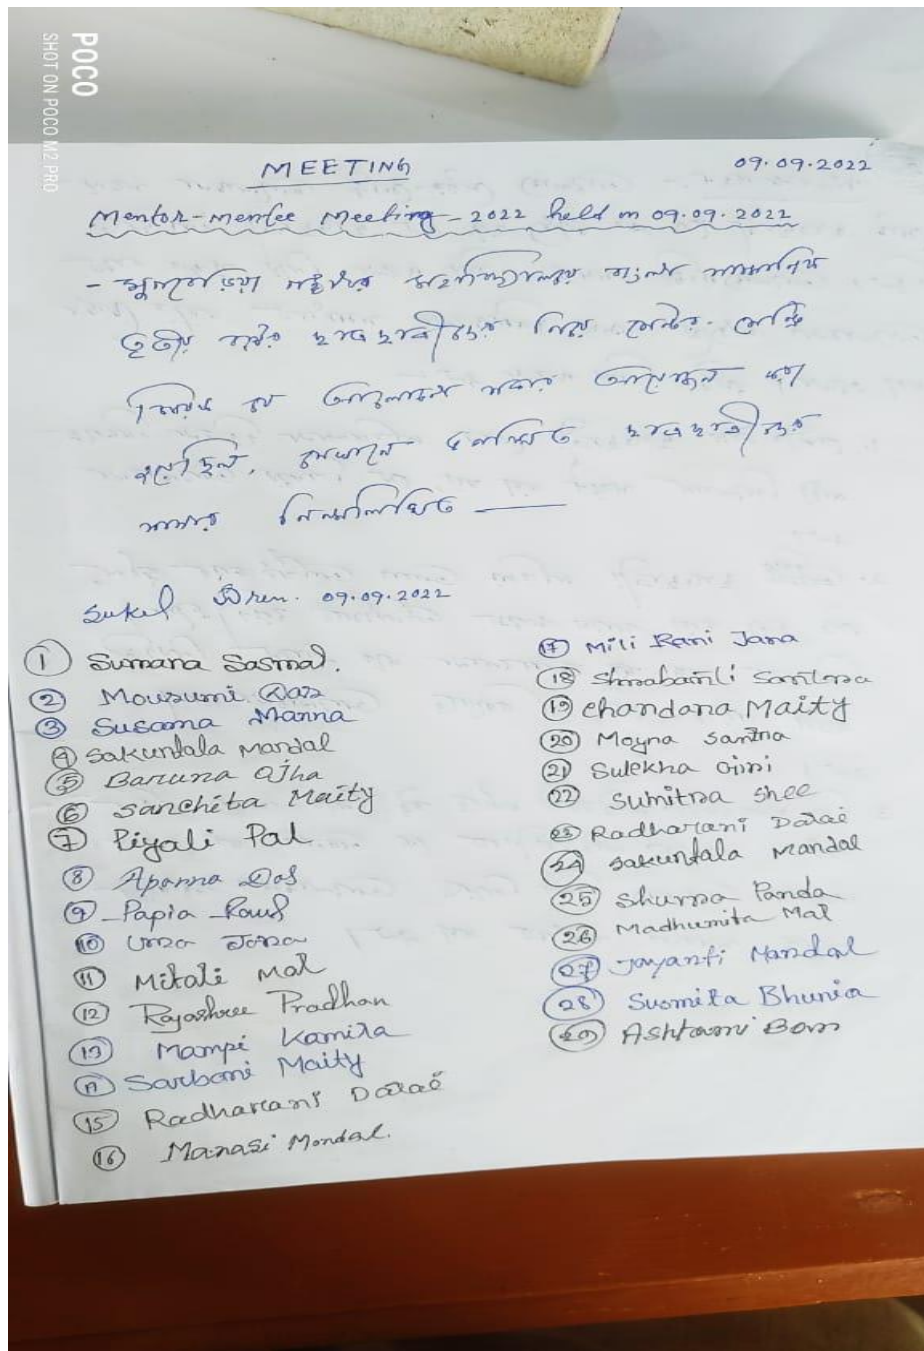 POCO
SHOT ON POCO M2 PRO
MEETING
09.09.2022
Mentor-mentee Meeting - 2022 held on 09.09.2022
- মহাবিদ্যালয়ে বাংলা সাম্মানিক
তৃতীয় বর্ষের ছাত্রছাত্রীদের নিয়ে মেন্টর মেন্টি
আলোচনা সভার আয়োজন করা
হয়েছিল, সেখানে উপস্থিত ছাত্রছাত্রীদের
নিম্নলিখিত ——
09.09.2022
1 Sumana Sasmal.
2 Mousumi Das
3 Susama Manna
4 Sakuntala Mandal
5 Baruna Ojha
6 Sanchita Maity
7 Piyali Pal
8 Aparna Das
9 Papia
10 Uma Jana
11 Mitali Mal
12 Rajashree Pradhan
13 Mampi Kamila
Sarbani Maity
15 Radharani Dalai
16 Manasi Mondal.
17 Mili Rani Jana
18 Shrabanti Santra
19 Chandana Maity
20 Moyna Santra
21 Sulekha Giri
22 Sumitra Shee
23 Radharani Dalai
24 Sakuntala Mandal
25 Panda
26 Madhumita Mal
27 Jayanti Mandal
28 Susmita Bhunia
29 Ashtami